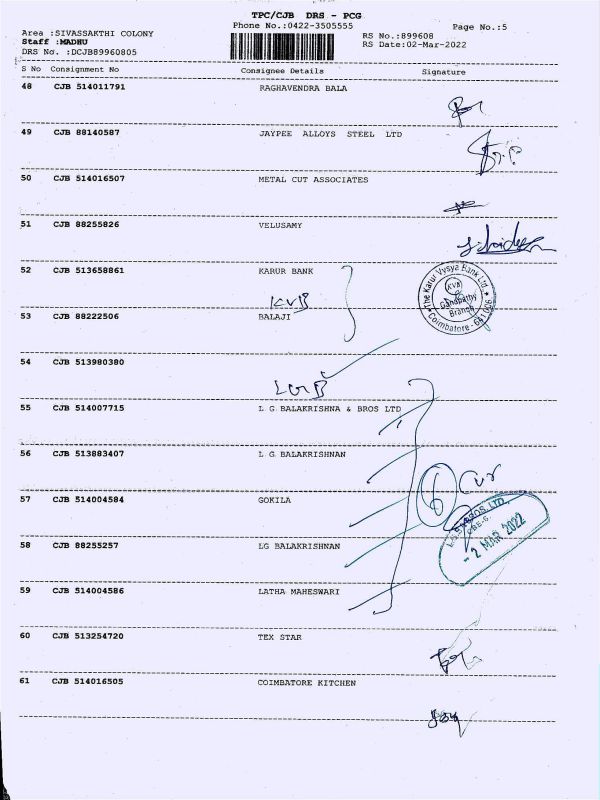 TPC/CJB DRS - PCG
Phone No.:0422-3505555
Page No.:5
Area :SIVASSAKTHI COLONY
Staff :MADHU
DRS No. :DCJB89960805
RS No.:899608
RS Date:02-Mar-2022
S No Consignment No Consignee Details Signature
48 CJB 514011791 RAGHAVENDRA BALA
49 CJB 88140587 JAYPEE ALLOYS STEEL LTD
50 CJB 514016507 METAL CUT ASSOCIATES
51 CJB 88255826 VELUSAMY
52 CJB 513658861 KARUR BANK
KVB
The Karur Vysya Bank Ltd.
KVB
Ganapathy
Branch
Coimbatore - 641 006
53 CJB 88222506 BALAJI
54 CJB 513980380
LGB
55 CJB 514007715 L G BALAKRISHNA & BROS LTD
56 CJB 513883407 L G BALAKRISHNAN
6
57 CJB 514004584 GOKILA
- 2 MAR 2022
58 CJB 88255257 LG BALAKRISHNAN
59 CJB 514004586 LATHA MAHESWARI
60 CJB 513254720 TEX STAR
61 CJB 514016505 COIMBATORE KITCHEN